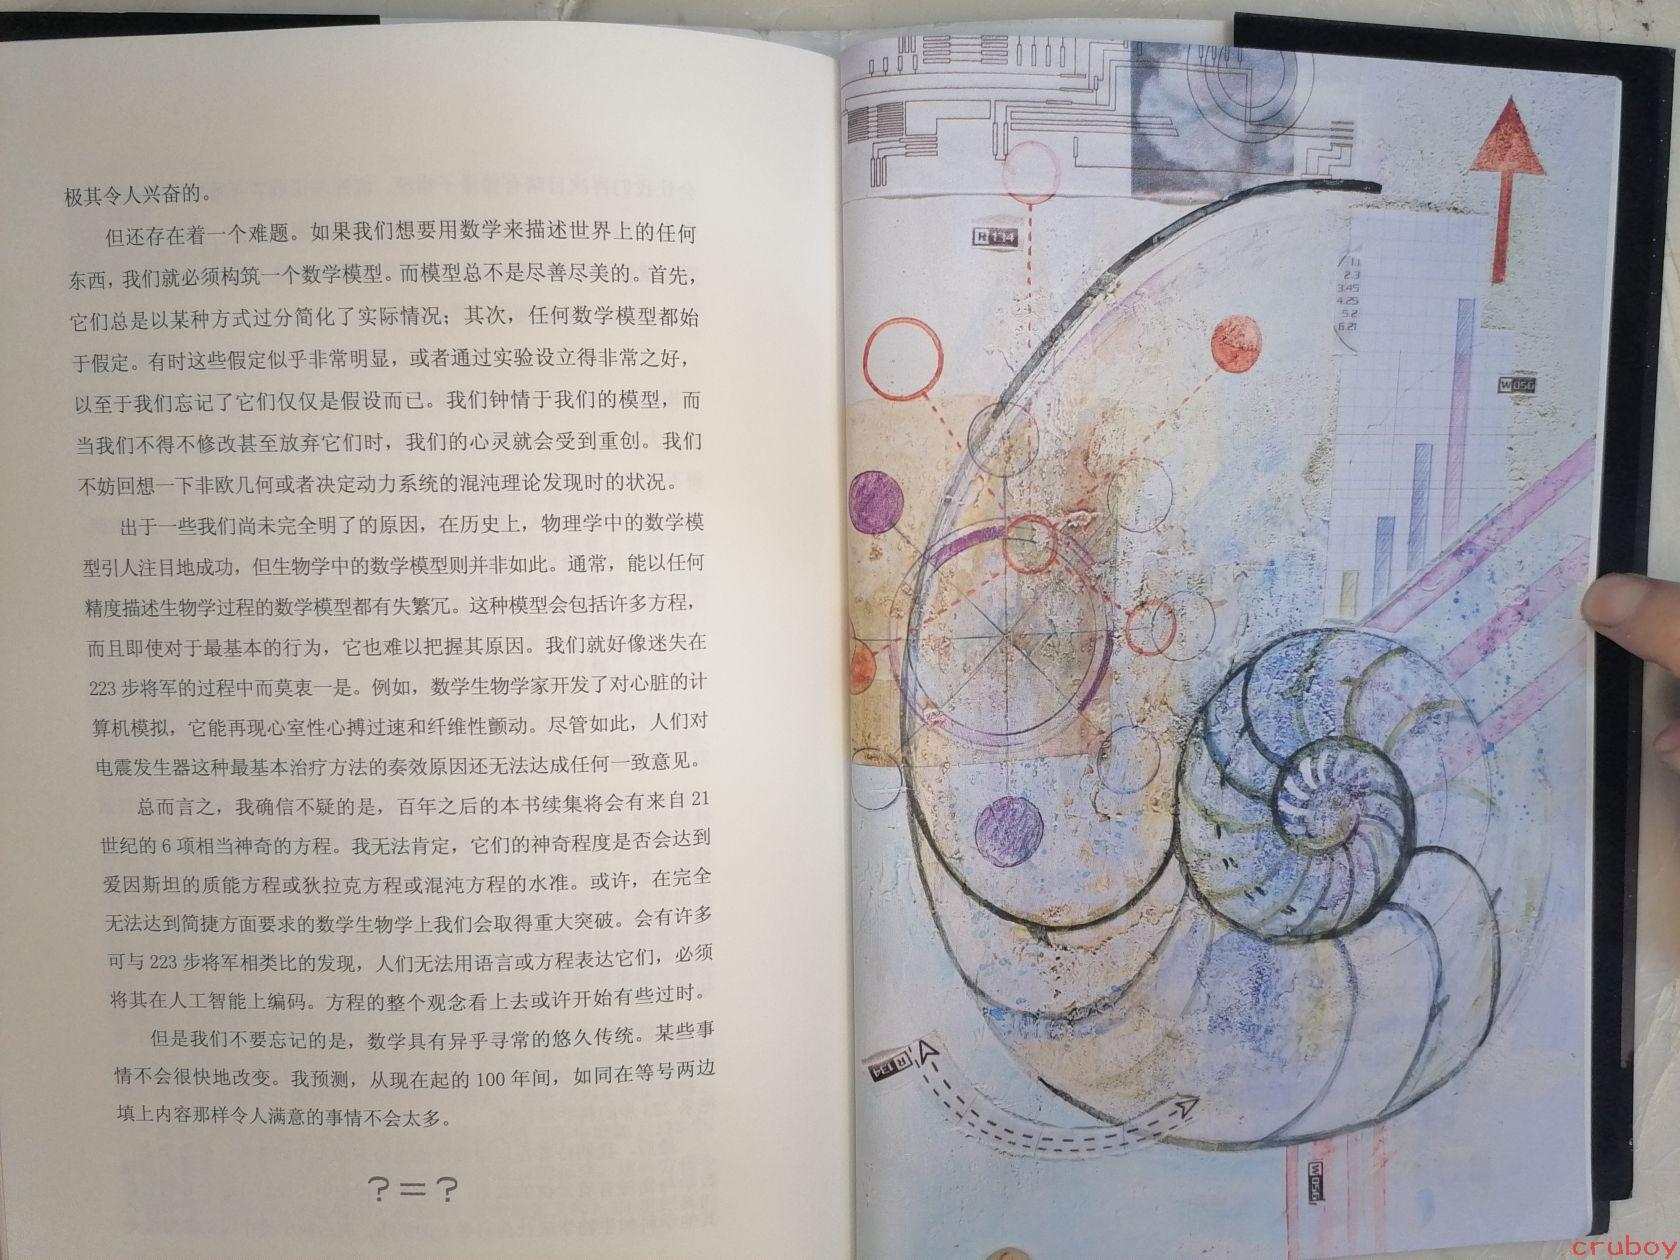 极其令人兴奋的。
但还存在着一个难题。如果我们想要用数学来描述世界上的任何
东西，我们就必须构筑一个数学模型。而模型总不是尽善尽美的。首先，
它们总是以某种方式过分简化了实际情况；其次，任何数学模型都始
于假定。有时这些假定似乎非常明显，或者通过实验设立得非常之好，
以至于我们忘记了它们仅仅是假设而已。我们钟情于我们的模型，而
当我们不得不修改甚至放弃它们时，我们的心灵就会受到重创。我们
不妨回想一下非欧几何或者决定动力系统的混沌理论发现时的状况。
出于一些我们尚未完全明了的原因，在历史上，物理学中的数学模
型引人注目地成功，但生物学中的数学模型则并非如此。通常，能以任何
精度描述生物学过程的数学模型都有失繁冗。这种模型会包括许多方程，
而且即使对于最基本的行为，它也难以把握其原因。我们就好像迷失在
223步将军的过程中而莫衷一是。例如，数学生物学家开发了对心脏的计
算机模拟，它能再现心室性心搏过速和纤维性颤动。尽管如此，人们对
电震发生器这种最基本治疗方法的奏效原因还无法达成任何一致意见。
总而言之，我确信不疑的是，百年之后的本书续集将会有来自21
世纪的6项相当神奇的方程。我无法肯定，它们的神奇程度是否会达到
爱因斯坦的质能方程或狄拉克方程或混沌方程的水准。或许，在完全
无法达到简捷方面要求的数学生物学上我们会取得重大突破。会有许多
可与223步将军相类比的发现，人们无法用语言或方程表达它们，必须
将其在人工智能上编码。方程的整个观念看上去或许开始有些过时。
但是我们不要忘记的是，数学具有异乎寻常的悠久传统。某些事
情不会很快地改变。我预测，从现在起的100年间，如同在等号两边
填上内容那样令人满意的事情不会太多。
？＝？
R 134
1.1
2.3
3.45
4.25
5.2
6.21
W 056
R 134
W 056
cruboy